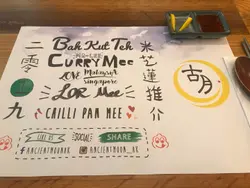 二零一九
Bak Kut Teh
CURRY Mee
LOVE Malaysia
Singapore
LOR Mee
CHILLI PAN MEE
米芝蓮推介
胡
LIKE US
SOCIAL
SHARE
ANCIENTMOONHK
ANCIENTMOON_HK